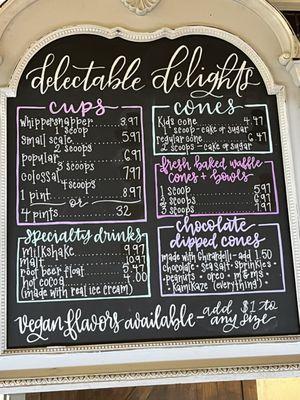 delectable delights
cups
whippersnapper......3.97
1 scoop
small scale..........5.97
2 scoops
popular..............6.97
3 scoops
colossal.............7.97
4 scoops
1 pint...............8.97
or
4 pints.........32
cones
kids cone.......4.47
1 scoop - cake or sugar
regular cone....6.47
2 scoops - cake or sugar
fresh baked waffle
cones + bowls
1 scoop.........5.97
2 scoops........6.97
3 scoops........7.97
Specialty drinks
milkshake.......9.97
malt............10.97
root beer float.
hot cocoa.......4.00
(made with real ice cream)
chocolate
dipped cones
made with Ghirardelli - add 1.50
chocolate • sea salt • sprinkles •
peanuts • oreo • m&ms •
• kamikaze (everything) •
vegan flavors available - add $1 to
any size